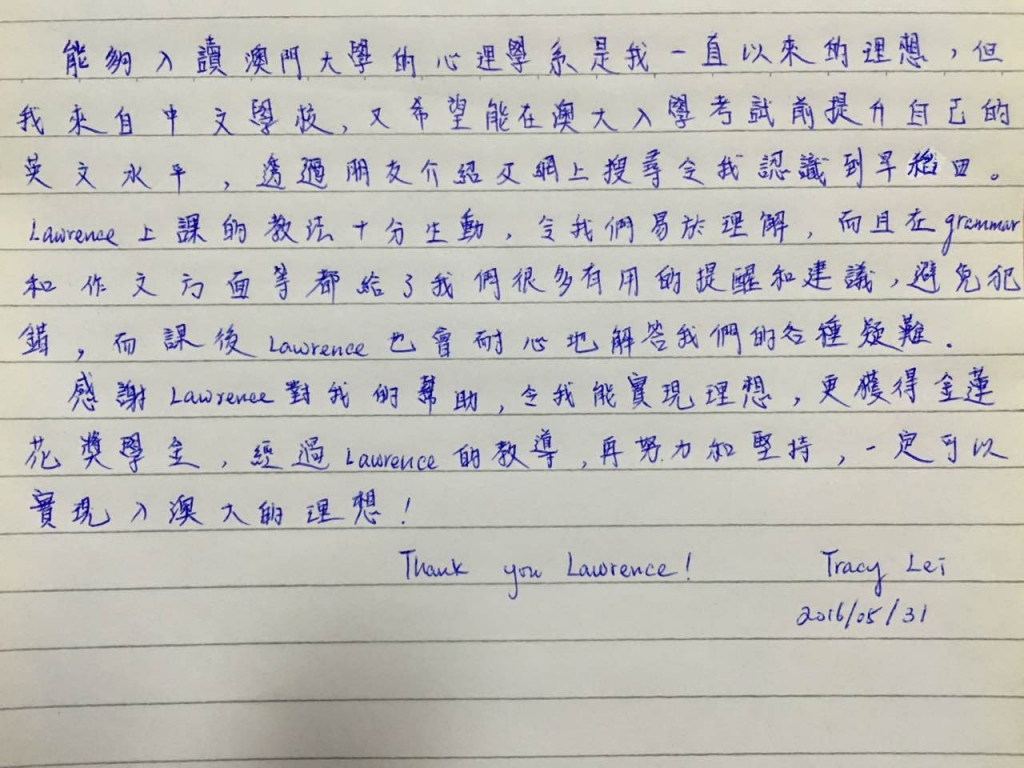 能夠入讀澳門大學的心理學系是我一直以來的理想，但
我來自中文學校，又希望能在澳大入學考試前提升自己的
英文水平，透過朋友介紹及網上搜尋令我認識到早稻田。
Lawrence上課的教法十分生動，令我們易於理解，而且在grammar
和作文方面等都給了我們很多有用的提醒和建議，避免犯
錯，而課後Lawrence也會耐心地解答我們的各種疑難．
感謝Lawrence對我的幫助，令我能實現理想，更獲得金蓮
花獎學金，經過Lawrence的教導，再努力和堅持，一定可以
實現入澳大的理想！
Thank you Lawrence! Tracy Lei
2016/05/31